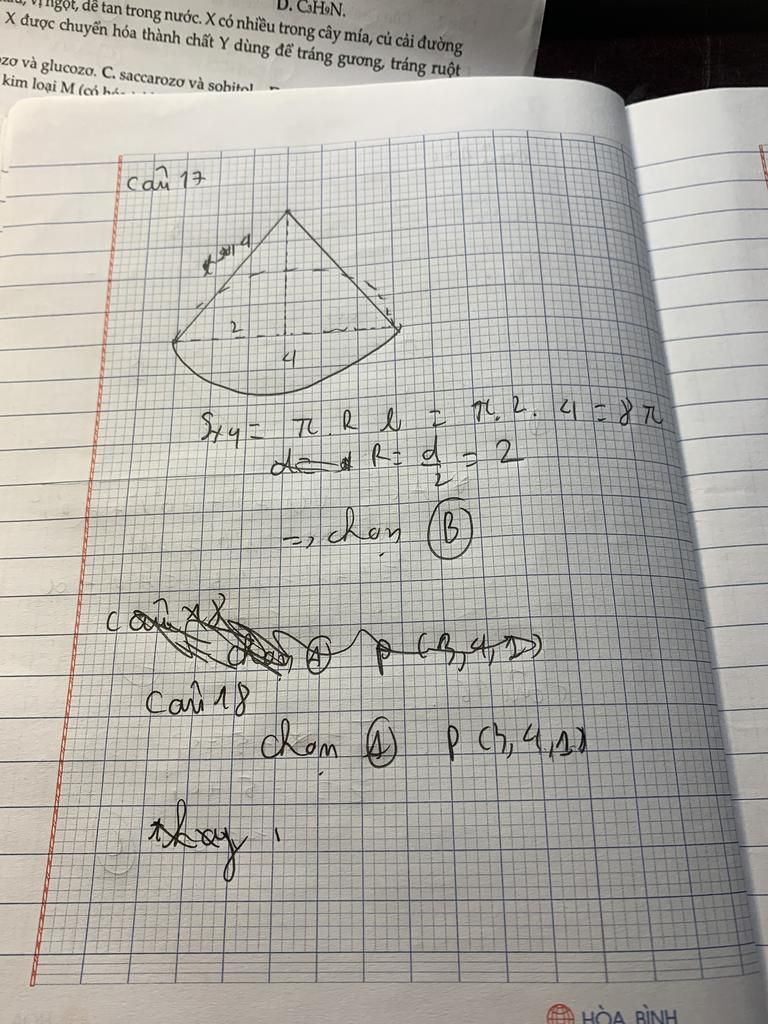 D. C₃H₉N.
vị ngọt, dễ tan trong nước. X có nhiều trong cây mía, củ cải đường
X được chuyển hóa thành chất Y dùng để tráng gương, tráng ruột
zơ và glucozơ. C. saccarozơ và sobitol.
kim loại M (có
Câu 17
4
2
4
Sxq = π . R l = π. 2 . 4 = 8 π
R = d/2 = 2
=> chọn B
chọn A P (3, 4, 1)
Câu 18
chọn A P (3, 4, 1)
thay
HÒA BÌNH